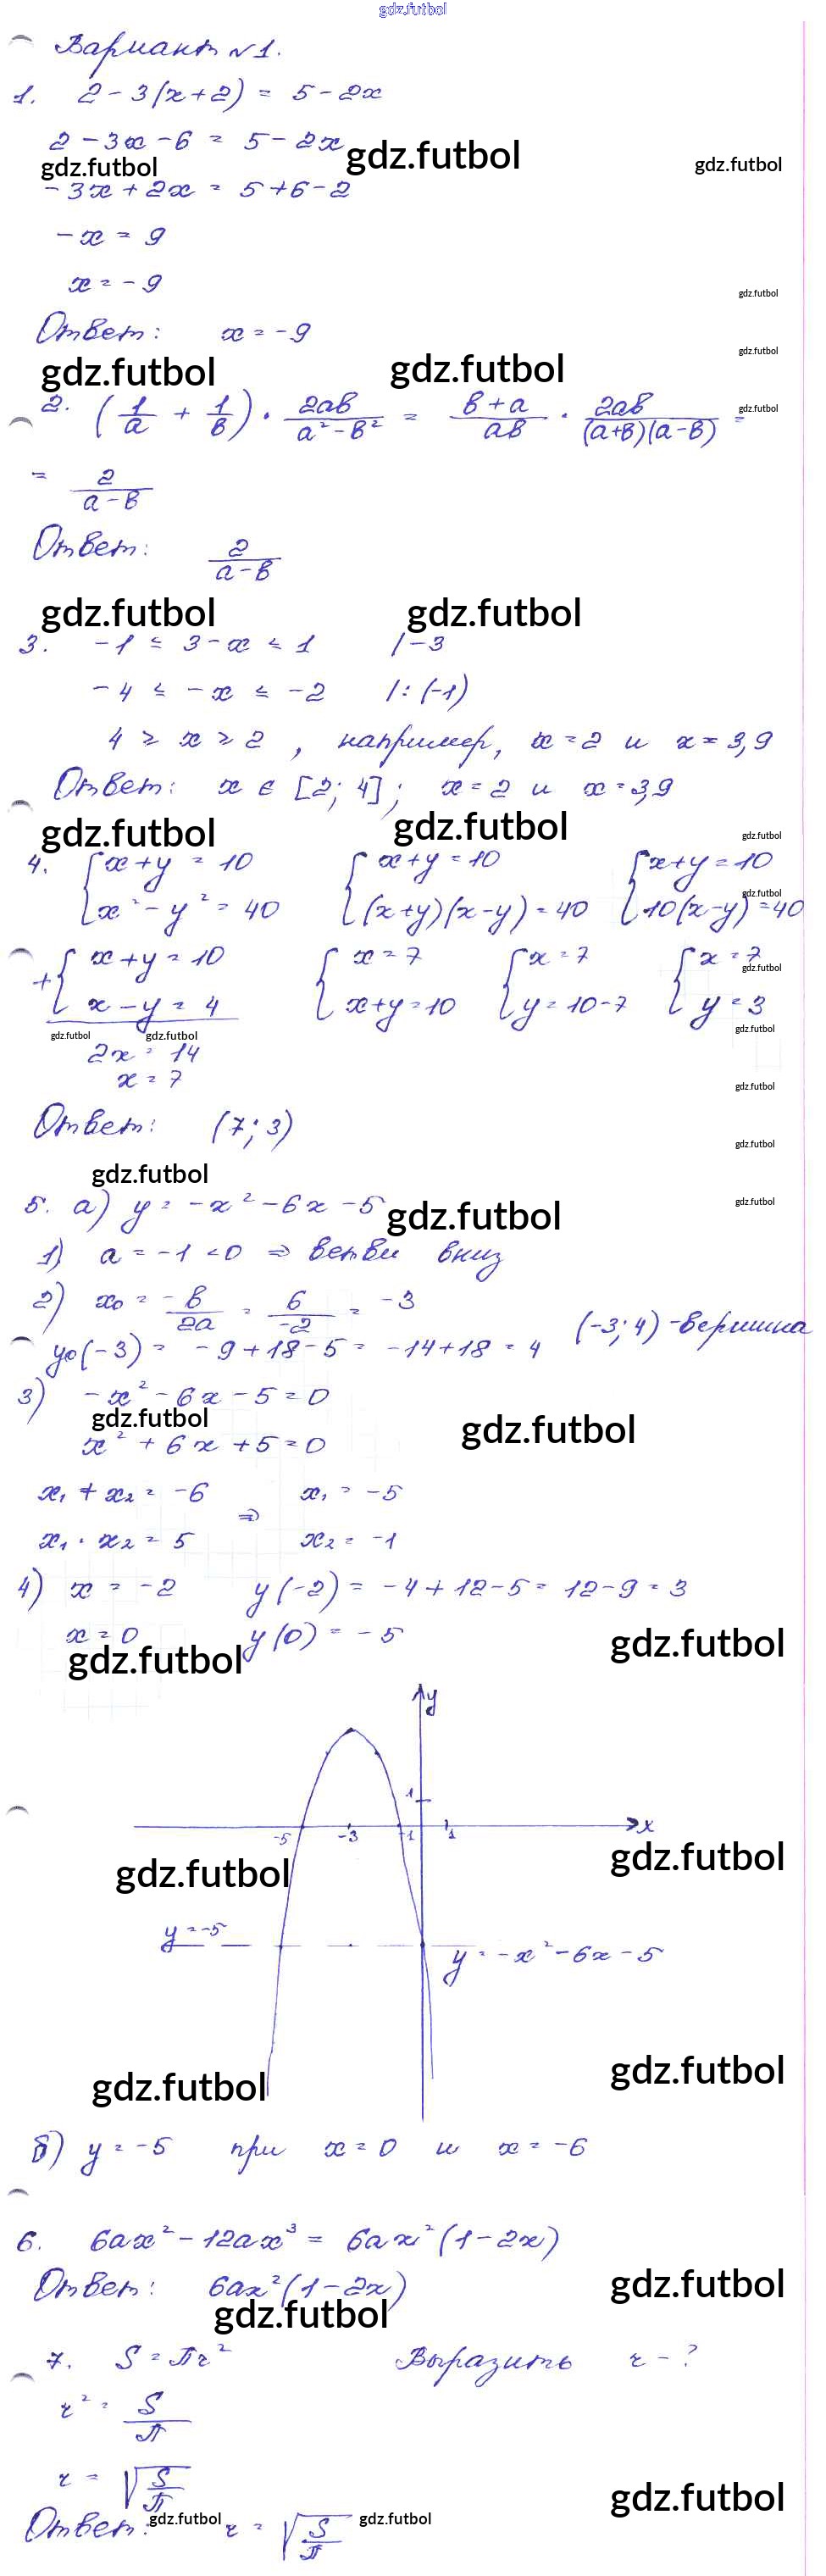 gdz.futbol
Вариант №1.
1. 2 - 3(x+2) = 5 - 2x
2 - 3x - 6 = 5 - 2x
gdz.futbol gdz.futbol gdz.futbol
-3x + 2x = 5 + 6 - 2
-x = 9
x = -9
gdz.futbol
Ответ: x = -9
gdz.futbol
gdz.futbol gdz.futbol
2. (1/a + 1/b) · 2ab/(a² - b²) = (b + a)/(ab) · 2ab/((a+b)(a-b)) =
gdz.futbol
= 2/(a - b)
Ответ: 2/(a - b)
gdz.futbol gdz.futbol
3. -1 ≤ 3 - x ≤ 1 | -3
-4 ≤ -x ≤ -2 | : (-1)
4 ≥ x ≥ 2, например, x = 2 и x = 3,9
Ответ: x ∈ [2; 4]; x = 2 и x = 3,9
gdz.futbol gdz.futbol gdz.futbol
4. { x + y = 10 { x + y = 10 { x + y = 10
x² - y² = 40 (x+y)(x-y) = 40 10(x-y) = 40
gdz.futbol
+ { x + y = 10 { x = 7 { x = 7 { x = 7
gdz.futbol
x - y = 4 x + y = 10 y = 10 - 7 y = 3
gdz.futbol gdz.futbol gdz.futbol
2x = 14
x = 7
gdz.futbol
Ответ: (7; 3)
gdz.futbol
gdz.futbol
5. а) y = -x² - 6x - 5
gdz.futbol gdz.futbol
1) a = -1 < 0 ⇒ ветви вниз
2) x₀ = -b/2a = 6/-2 = -3
(-3; 4) - вершина
y₀(-3) = -9 + 18 - 5 = -14 + 18 = 4
3) -x² - 6x - 5 = 0
gdz.futbol gdz.futbol
x² + 6x + 5 = 0
x₁ + x₂ = -6 ⇒ x₁ = -5
x₁ · x₂ = 5 x₂ = -1
4) x = -2 y(-2) = -4 + 12 - 5 = 12 - 9 = 3
x = 0 y(0) = -5
gdz.futbol gdz.futbol
y
1
-5 -3 -1 1 x
gdz.futbol gdz.futbol
y = -5
y = -x² - 6x - 5
gdz.futbol gdz.futbol
б) y = -5 при x = 0 и x = -6
6. 6ax² - 12ax³ = 6ax²(1 - 2x)
Ответ: 6ax²(1 - 2x)
gdz.futbol
gdz.futbol
7. S = πr² Выразить r - ?
r² = S/π
r = √(S/π)
gdz.futbol
Ответ: r = √(S/π)
gdz.futbol gdz.futbol